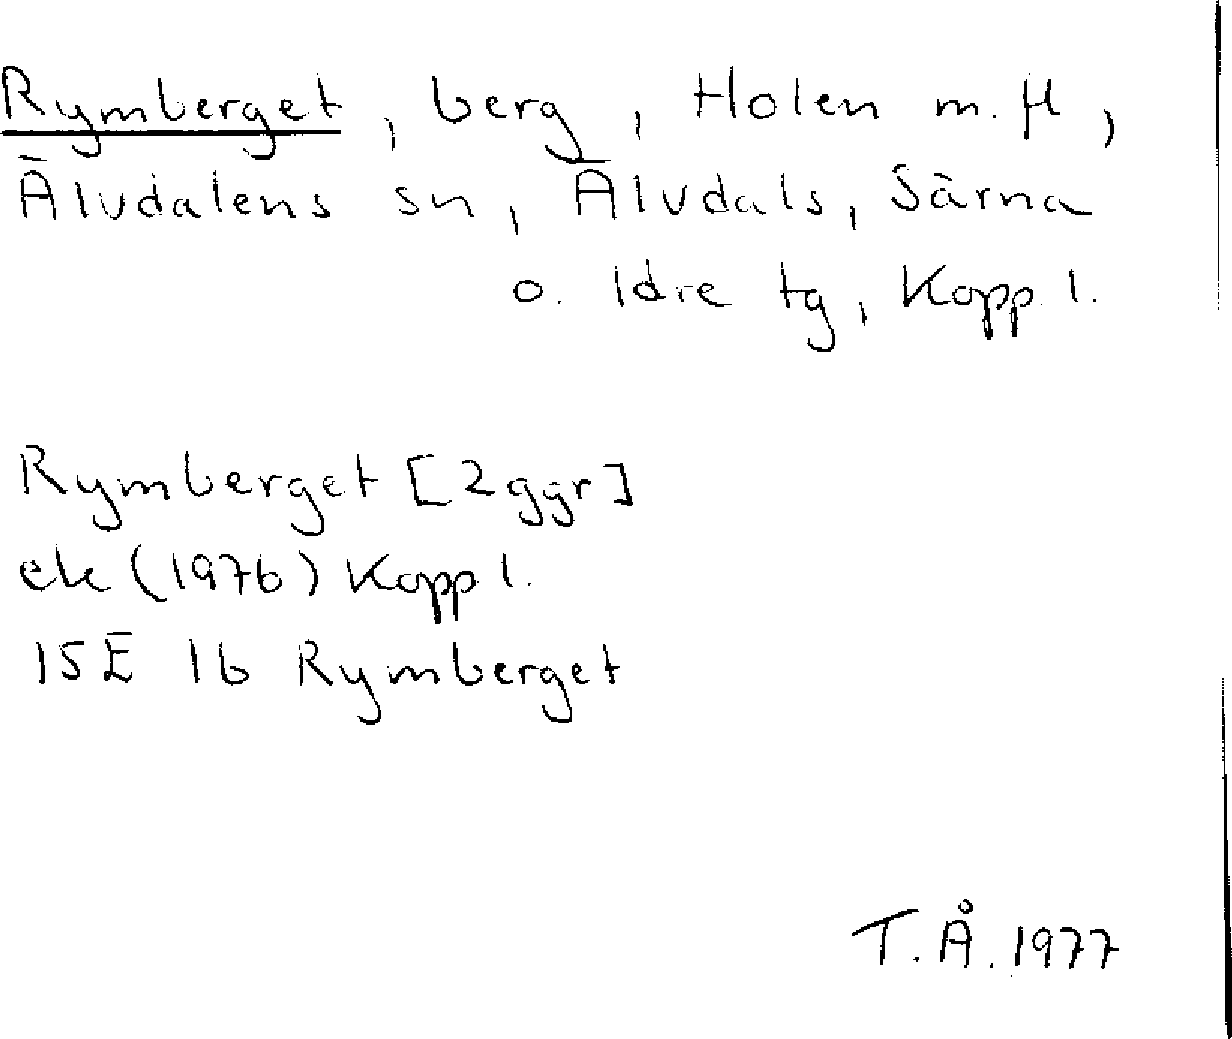 Rymberget, berg, Holen m. fl,
Älvdalens sn, Älvdals, Särna
o. Idre tg, Kopp l.
Rymberget [2ggr]
ek (1976) Kopp l.
15E 1b Rymberget
T.Å. 1977